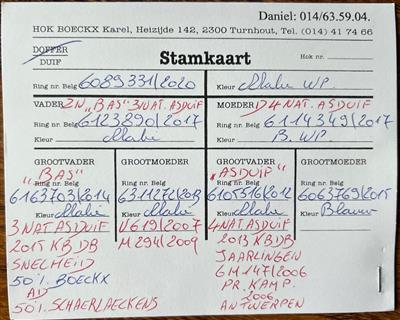 Daniel: 014/63.59.04.
HOK BOECKX Karel, Heizijde 142, 2300 Turnhout, Tel. (014) 41 74 66
DOFFER
DUIF
Stamkaart
Hok nr.
Ring nr. Belg 6089331/2020
Kleur Malie WP.
VADER ZN "BAS" 3 NAT. ASDUIF
MOEDER D 4 NAT. ASDUIF
Ring nr. Belg 6123290/2017
Ring nr. Belg 6114349/2017
Kleur Malie
Kleur B. WP.
GROOTVADER GROOTMOEDER GROOTVADER GROOTMOEDER
"BAS" "ASDUIF"
Ring nr. Belg Ring nr. Belg Ring nr. Belg Ring nr. Belg
6163703/2014 6311272/2013 6105516/2012 6063769/2015
Kleur Malie Kleur Malie Kleur Malie Kleur Blauw
3 NAT. ASDUIF
2015 KBDB
SNELHEID
50% BOECKX
AD
50% SCHAERLAECKENS
V619/2007
M294/2009
4 NAT. ASDUIF
2013 KBDB
JAARLINGEN
GM 147/2006
PR. KAMP.
2006
ANTWERPEN